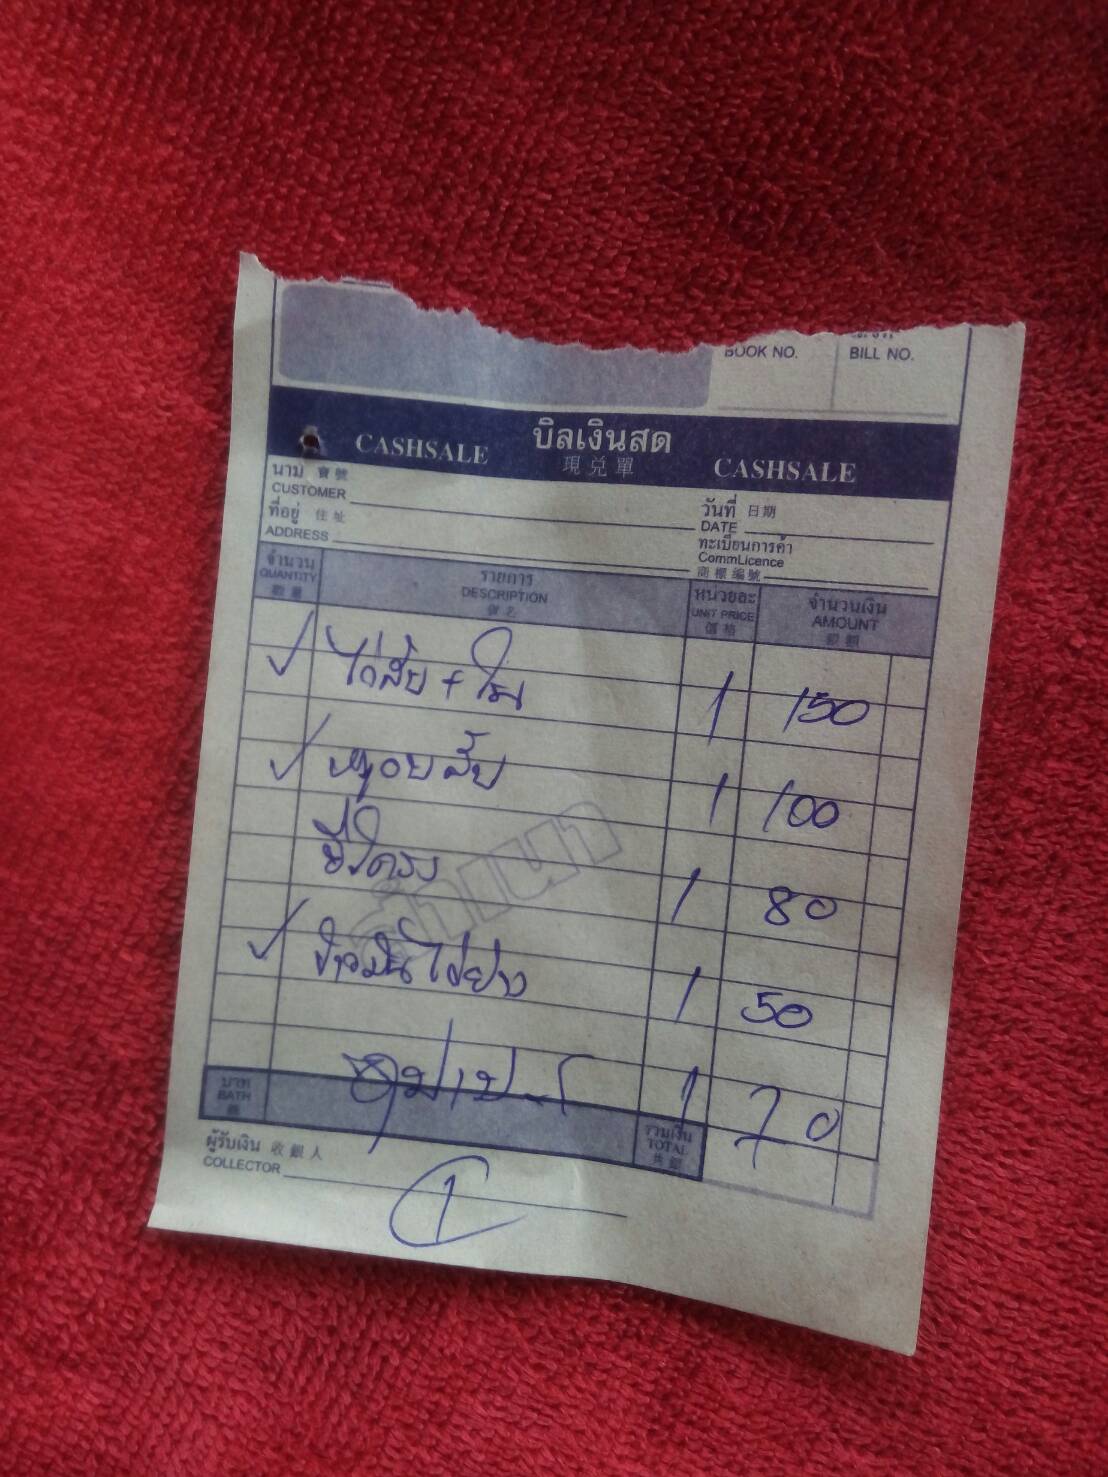 BOOK NO. BILL NO.
CASHSALE บิลเงินสด CASHSALE
現兑單
นาม 寶號
CUSTOMER
วันที่ 日期
DATE
ที่อยู่ 住址
ADDRESS
ทะเบียนการค้า
CommLicence
商標編號
จำนวน รายการ หน่วยละ จำนวนเงิน
QUANTITY DESCRIPTION UNIT PRICE AMOUNT
數量 貨名 價格 銀額
ไก่สับ + 1 150
หมูอบ 1 100
1 80
ข้าวมันไก่ย่าง 1 50
1 70
สำเนา
บาท
BATH
รวมเงิน
TOTAL
共銀
ผู้รับเงิน 收銀人
COLLECTOR
1